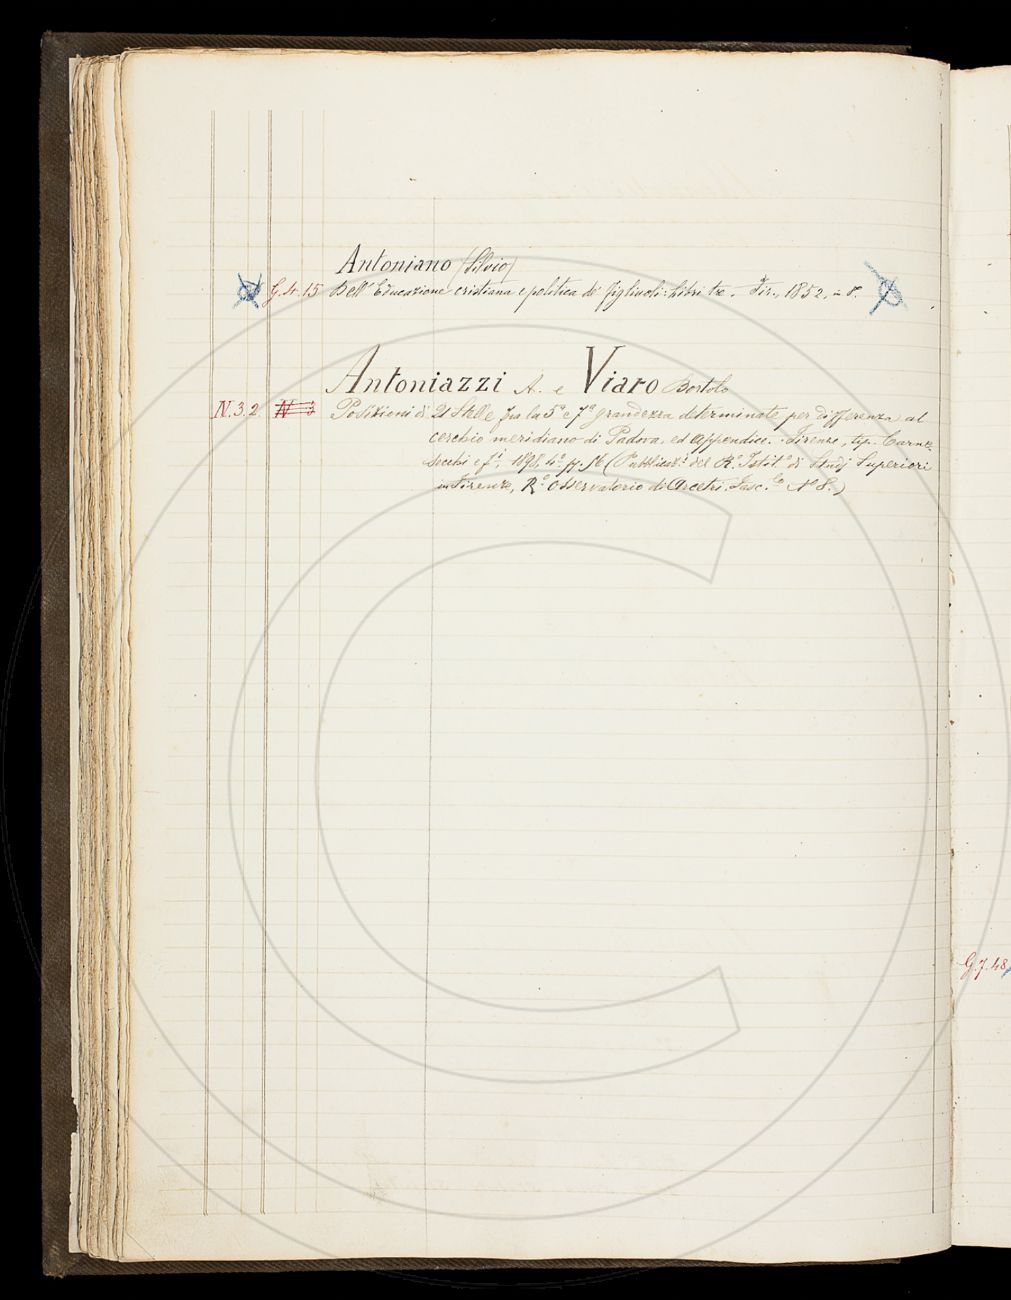 Antoniano (Silvio)
G. 4. 15 Dell' Educazione cristiana e politica de' figliuoli: Libri tre. Fir., 1852, in 8°.
Antoniazzi A. e Viaro Bortolo
N. 3. 2 N 3 Posizioni di 21 Stelle fra la 5ª e 7ª grandezza determinate per differenza al
cerchio meridiano di Padova, ed appendice. Firenze, tip. Carne-
secchi e fⁱ, 1898, 4° pp. 16 (Pubblicazⁱ del R.° Istit.° di Studj Superiori
in Firenze, R.° Osservatorio di Arcetri. Fasc.lo N° 8.)
G. 7. 48